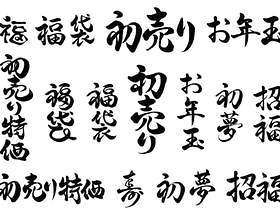 福 福袋 初売り お年玉
初売り特価 福袋 福袋 初売り お年玉 初夢 招福
初売り特価 寿 初夢 招福